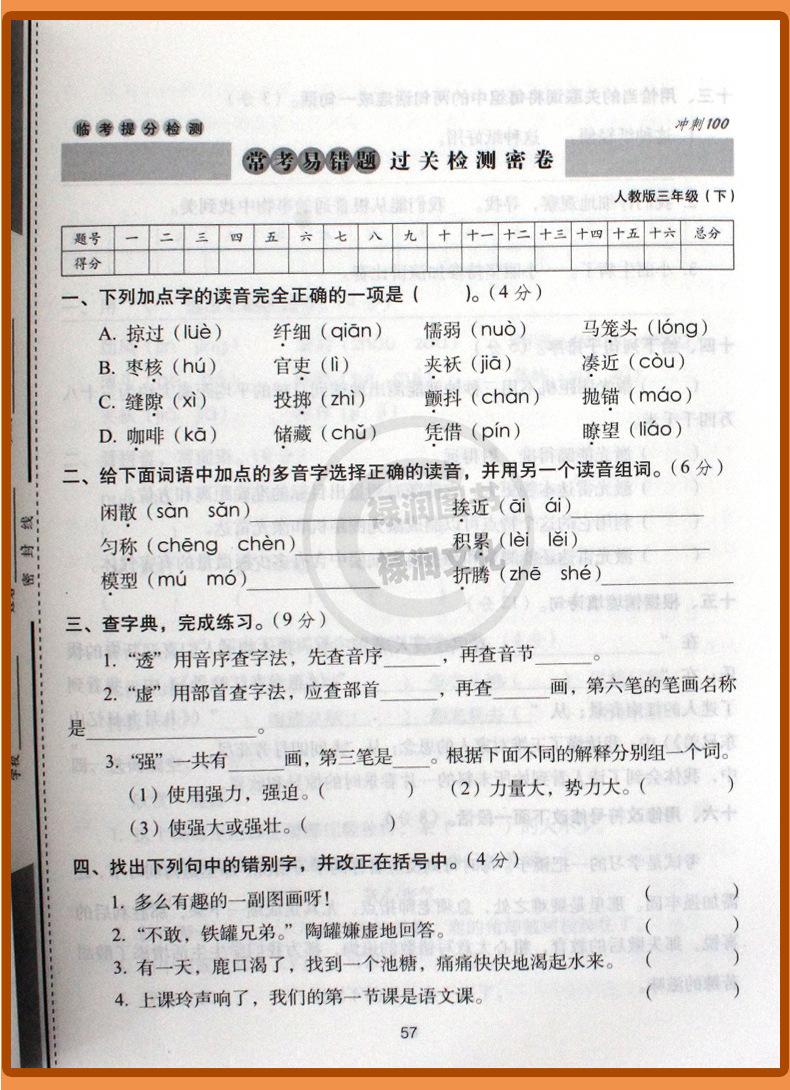 临考提分检测
冲刺100
常考易错题过关检测密卷
人教版三年级(下)
题号 一 二 三 四 五 六 七 八 九 十 十一 十二 十三 十四 十五 十六 总分
得分
一、下列加点字的读音完全正确的一项是( )。(4分)
A. 掠过(lüè) 纤细(qiān) 懦弱(nuò) 马笼头(lóng)
B. 枣核(hú) 官吏(lì) 夹袄(jiā) 凑近(còu)
C. 缝隙(xì) 投掷(zhì) 颤抖(chàn) 抛锚(máo)
D. 咖啡(kā) 储藏(chǔ) 凭借(pín) 瞭望(liáo)
二、给下面词语中加点的多音字选择正确的读音,并用另一个读音组词。(6分)
闲散(sàn sǎn) 挨近(āi ái)
匀称(chēng chèn) 积累(lèi lěi)
模型(mú mó) 折腾(zhē shé)
三、查字典,完成练习。(9分)
1. “透”用音序查字法,先查音序______,再查音节______。
2. “虚”用部首查字法,应查部首______,再查______画,第六笔的笔画名称
是__________________。
3. “强”一共有______画,第三笔是____。根据下面不同的解释分别组一个词。
(1)使用强力,强迫。( ) (2)力量大,势力大。( )
(3)使强大或强壮。( )
四、找出下列句中的错别字,并改正在括号中。(4分)
1. 多么有趣的一副图画呀! ( )
2. “不敢,铁罐兄弟。”陶罐嫌虚地回答。 ( )
3. 有一天,鹿口渴了,找到一个池糖,痛痛快快地渴起水来。 ( )
4. 上课玲声响了,我们的第一节课是语文课。 ( )
57
密 封 线
学校
禄润图书
禄润文化